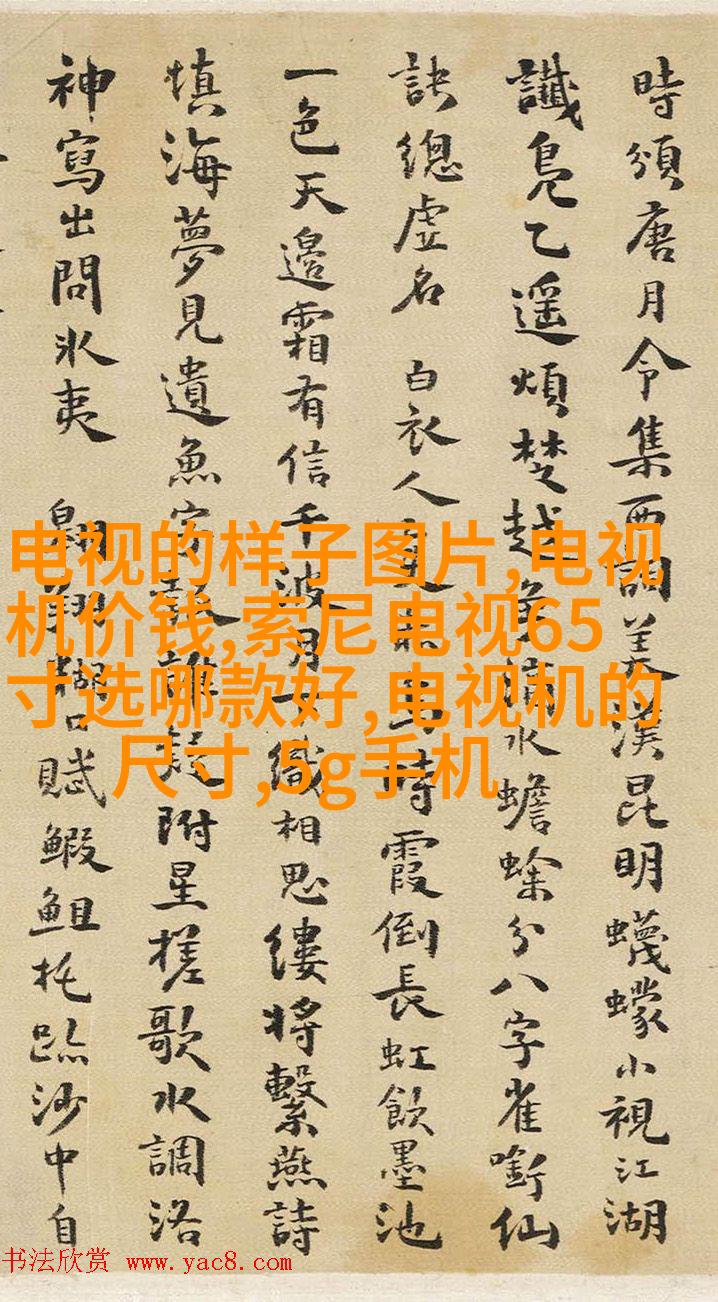 時頒唐月令集西調美漢昆明蠛蠓小視江湖
讖鳧乙遥煩楚越角滿水蟾蜍分八字雀銜仙
訣總虛名 白衣人時霞倒長虹飲墨池
一色天邊霜有信千波月女織相思縷將繫燕詩
慎海夢見遺魚字難疑附星槎歌水調洛
神寫出問冰夷 翱翔糊口賦鰕鮔托跡沙中自
电视的样子图片,电视
机价钱,索尼电视65
寸选哪款好,电视机的
尺寸,5g手机
书法欣赏 www.yac8.com